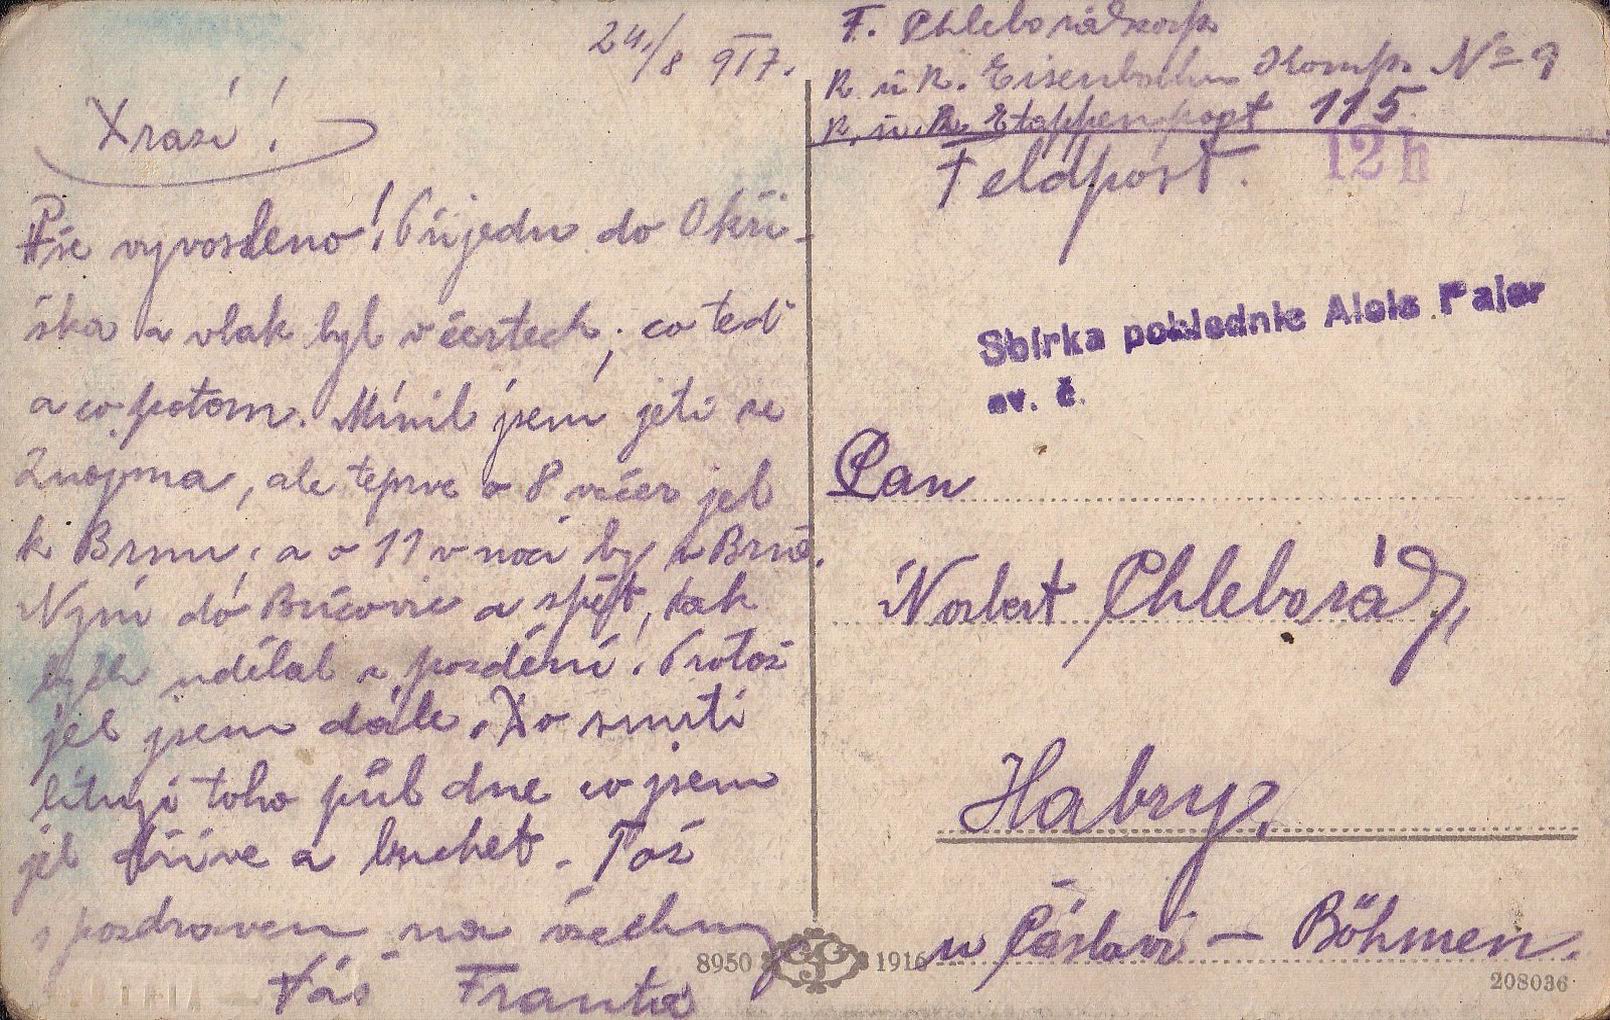 24./8 917.
Drazí!
Vše vyvosleno! Přijedu do Okří-
ška a vlak byl v čertech, co teď
a co potom. Mínil jsem jeti se
Znojma, ale teprve o 8 večer jel
k Brnu, a o 11 v noci by v Brně.
Nyní do Bučovic a spět, tak
bych udělal pozdění! Protož
jel jsem dále. Do smrti
lituji toho půl dne co jsem
jel dříve a buchet. Též
s pozdravem na všechny
Váš Franta
F. Chleborád
K. u K. Eisenbahn Komp. Nº 9
K. u. K. Etappenpost 115.
Feldpost.
12h
Sbírka pohlednic Alois Pajer
ev. č.
Pan
Norbert Chleborád,
Habry.
u Čáslavi — Böhmen.
8950 1916
208036